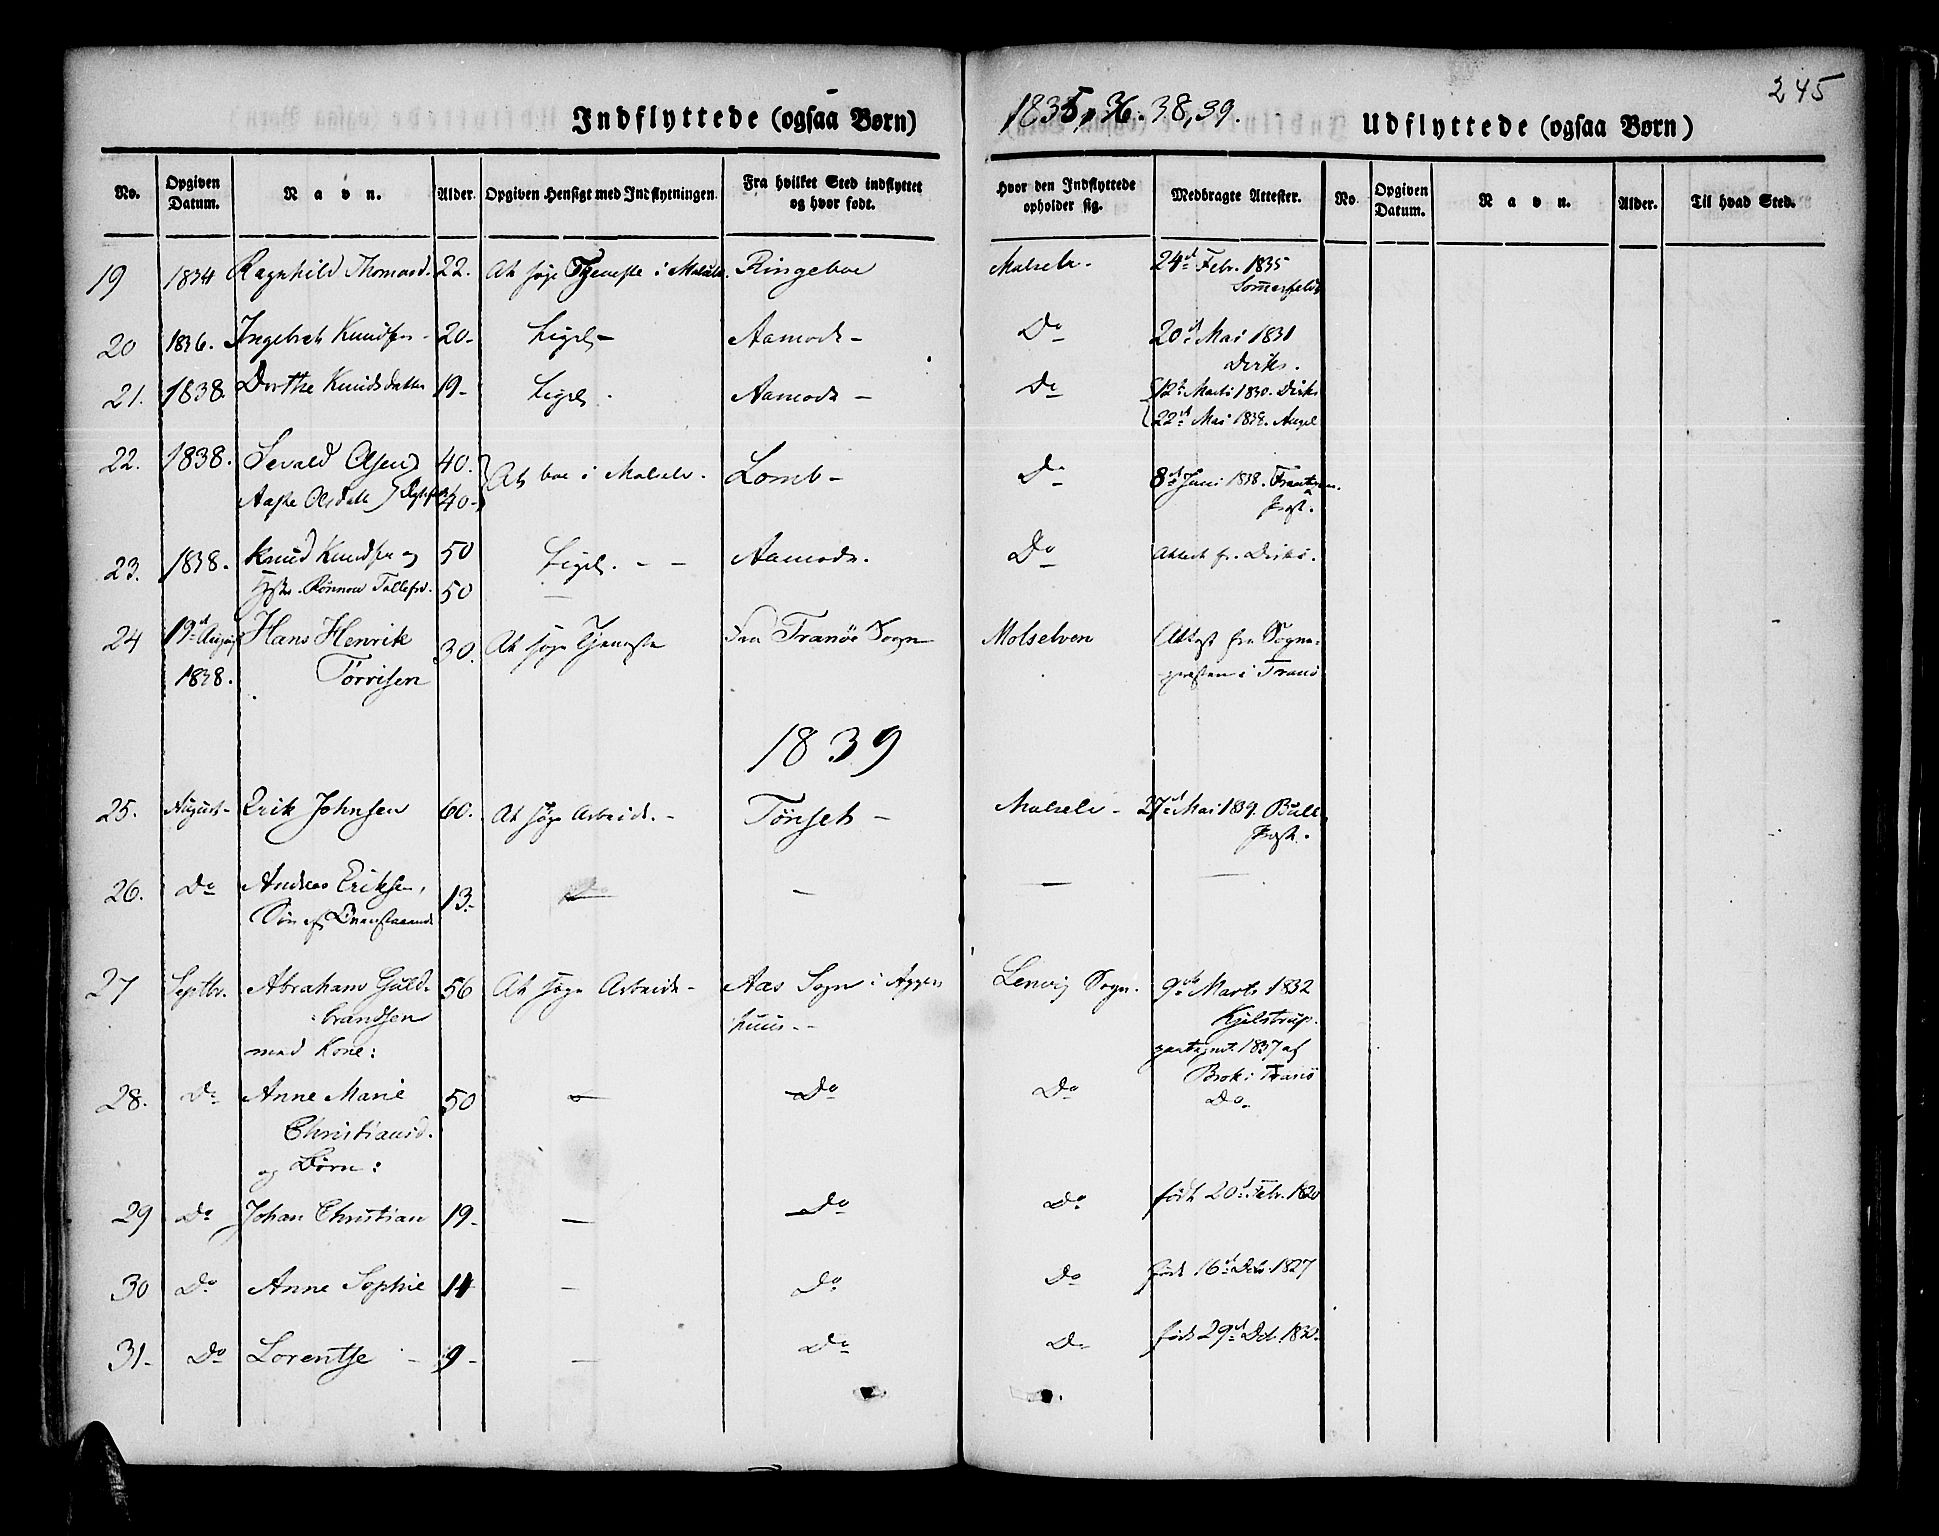 245
Indflyttede (ogsaa Børn) 1835, 36. 38, 39. Udflyttede (ogsaa Børn)
No. Opgiven Datum. Navn. Alder. Opgiven Hensigt med Indflytningen. Fra hvilket Sted indflyttet og hvor født. Hvor den Indflyttede opholder sig. Medbragte Attester. No. Opgiven Datum. Navn. Alder. Til hvad Sted.
19 1834 Ragnhild Thomasd. 22. At søge Tjeneste i Malselv. Ringeboe Malselv. 24d Febr. 1835
Sommerfeldt
20 1836. Ingebret Knudsen - 20- Ligel- Aamodt - Do 20d Mai 1831
Dirks.
21. 1838. Dorthe Knudsdatter 19- Ligel. Aamodt - Do 12te Marts 1830. Dirks
22d Mai 1838. Angel
22. 1838. Sevald Olsen 40. At boe i Malselv. Lomb - Do 8d Juni 1838. Frantzen
Aaste Olsdatt 40- Præst.
23. 1838. Knud Knudsen og 50 Ligel. - - Aamodt. Do Attest fr. Dirks.
Hustr. Rönnou Tollefsd. 50
24 19d August Hans Henrik 30. At søge Tjeneste Fra Tranöe Sogn Molselven Attest fra Sogne-
1838. Törrisen præsten i Tranö
1839
25. August- Erik Johnsen 60. At søge Arbeide. - Tönset - Malselv - 27d Mai 1839. Bull
Præst.
26. Do Andreas Eriksen, 13- Do - - -
Sön af Ovenstaaende
27 Septbr. Abraham Guld- 56 At søge Arbeide - Aas Sogn i Agger- Lenvig Sogn. 9de Marts 1832
brandsen huus - - Kjelstrup.
med Kone: 1837 af
Brok i Tranö
28. Do Anne Marie 50 - Do Do Do
Christiansd.
og Börn:
29 Do Johan Christian 19- - Do Do födt 20d Febr. 1820
30 Do Anne Sophie 11 - Do Do födt 16d Dcbr. 1827
31- Do Lorentse - 9- - Do Do födt 29d Dcb. 1830.